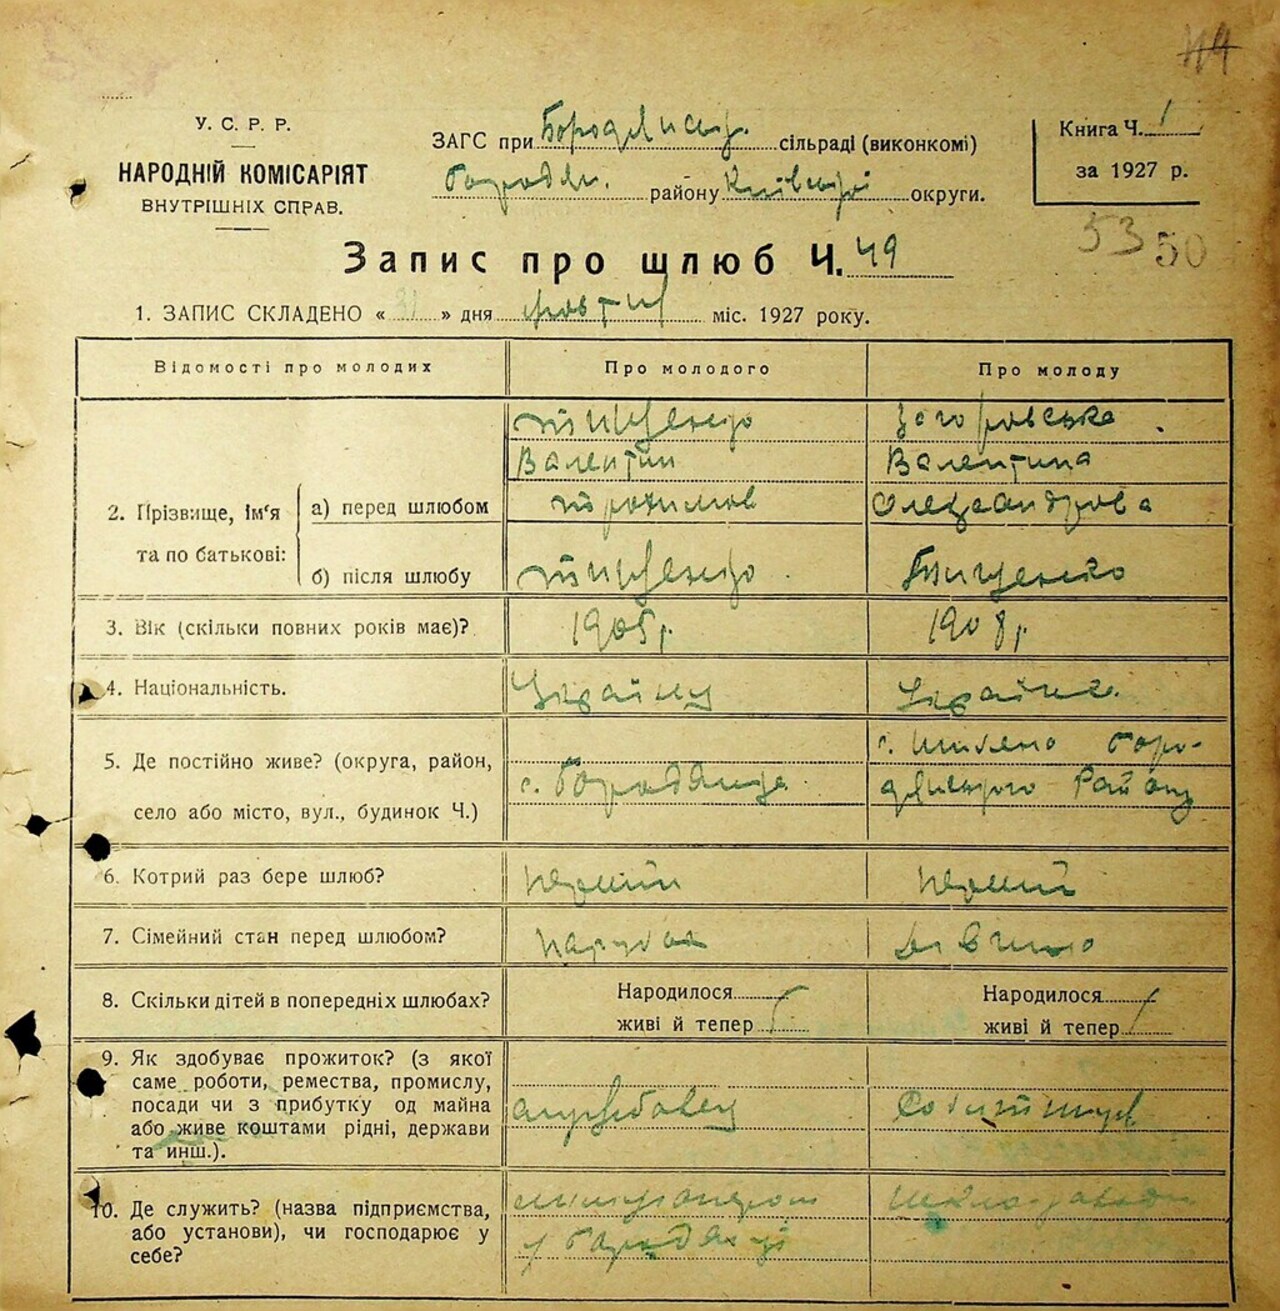 119
У. С. Р. Р.
НАРОДНІЙ КОМІСАРІЯТ
ВНУТРІШНІХ СПРАВ.
ЗАГС при Бородянськ. сільраді (виконкомі)
Бородян. району Київської округи.
Книга Ч. 1
за 1927 р.
53 50
Запис про шлюб Ч. 49
1. ЗАПИС СКЛАДЕНО « » дня жовтня міс. 1927 року.
Відомості про молодих Про молодого Про молоду
2. Прізвище, ім'я та по батькові:
а) перед шлюбом
Тищенко Загоровська
Валентин Валентина
Трохимов Олександрова
б) після шлюбу Тищенко Тищенко
3. Вік (скільки повних років має)? 1905 р. 1908 р.
4. Національність. Українц Українка
5. Де постійно живе? (округа, район,
село або місто, вул., будинок Ч.)
с. Бородянка
Боро-
дянського Району
6. Котрий раз бере шлюб? перший перший
7. Сімейний стан перед шлюбом? парубок дівчина
8. Скільки дітей в попередніх шлюбах? Народилося Народилося
живі й тепер живі й тепер
9. Як здобуває прожиток? (з якої
саме роботи, ремества, промислу,
посади чи з прибутку од майна
або живе коштами рідні, держави
та инш.).
службовец
10. Де служить? (назва підприємства,
або установи), чи господарює у
себе?
у Бородянці